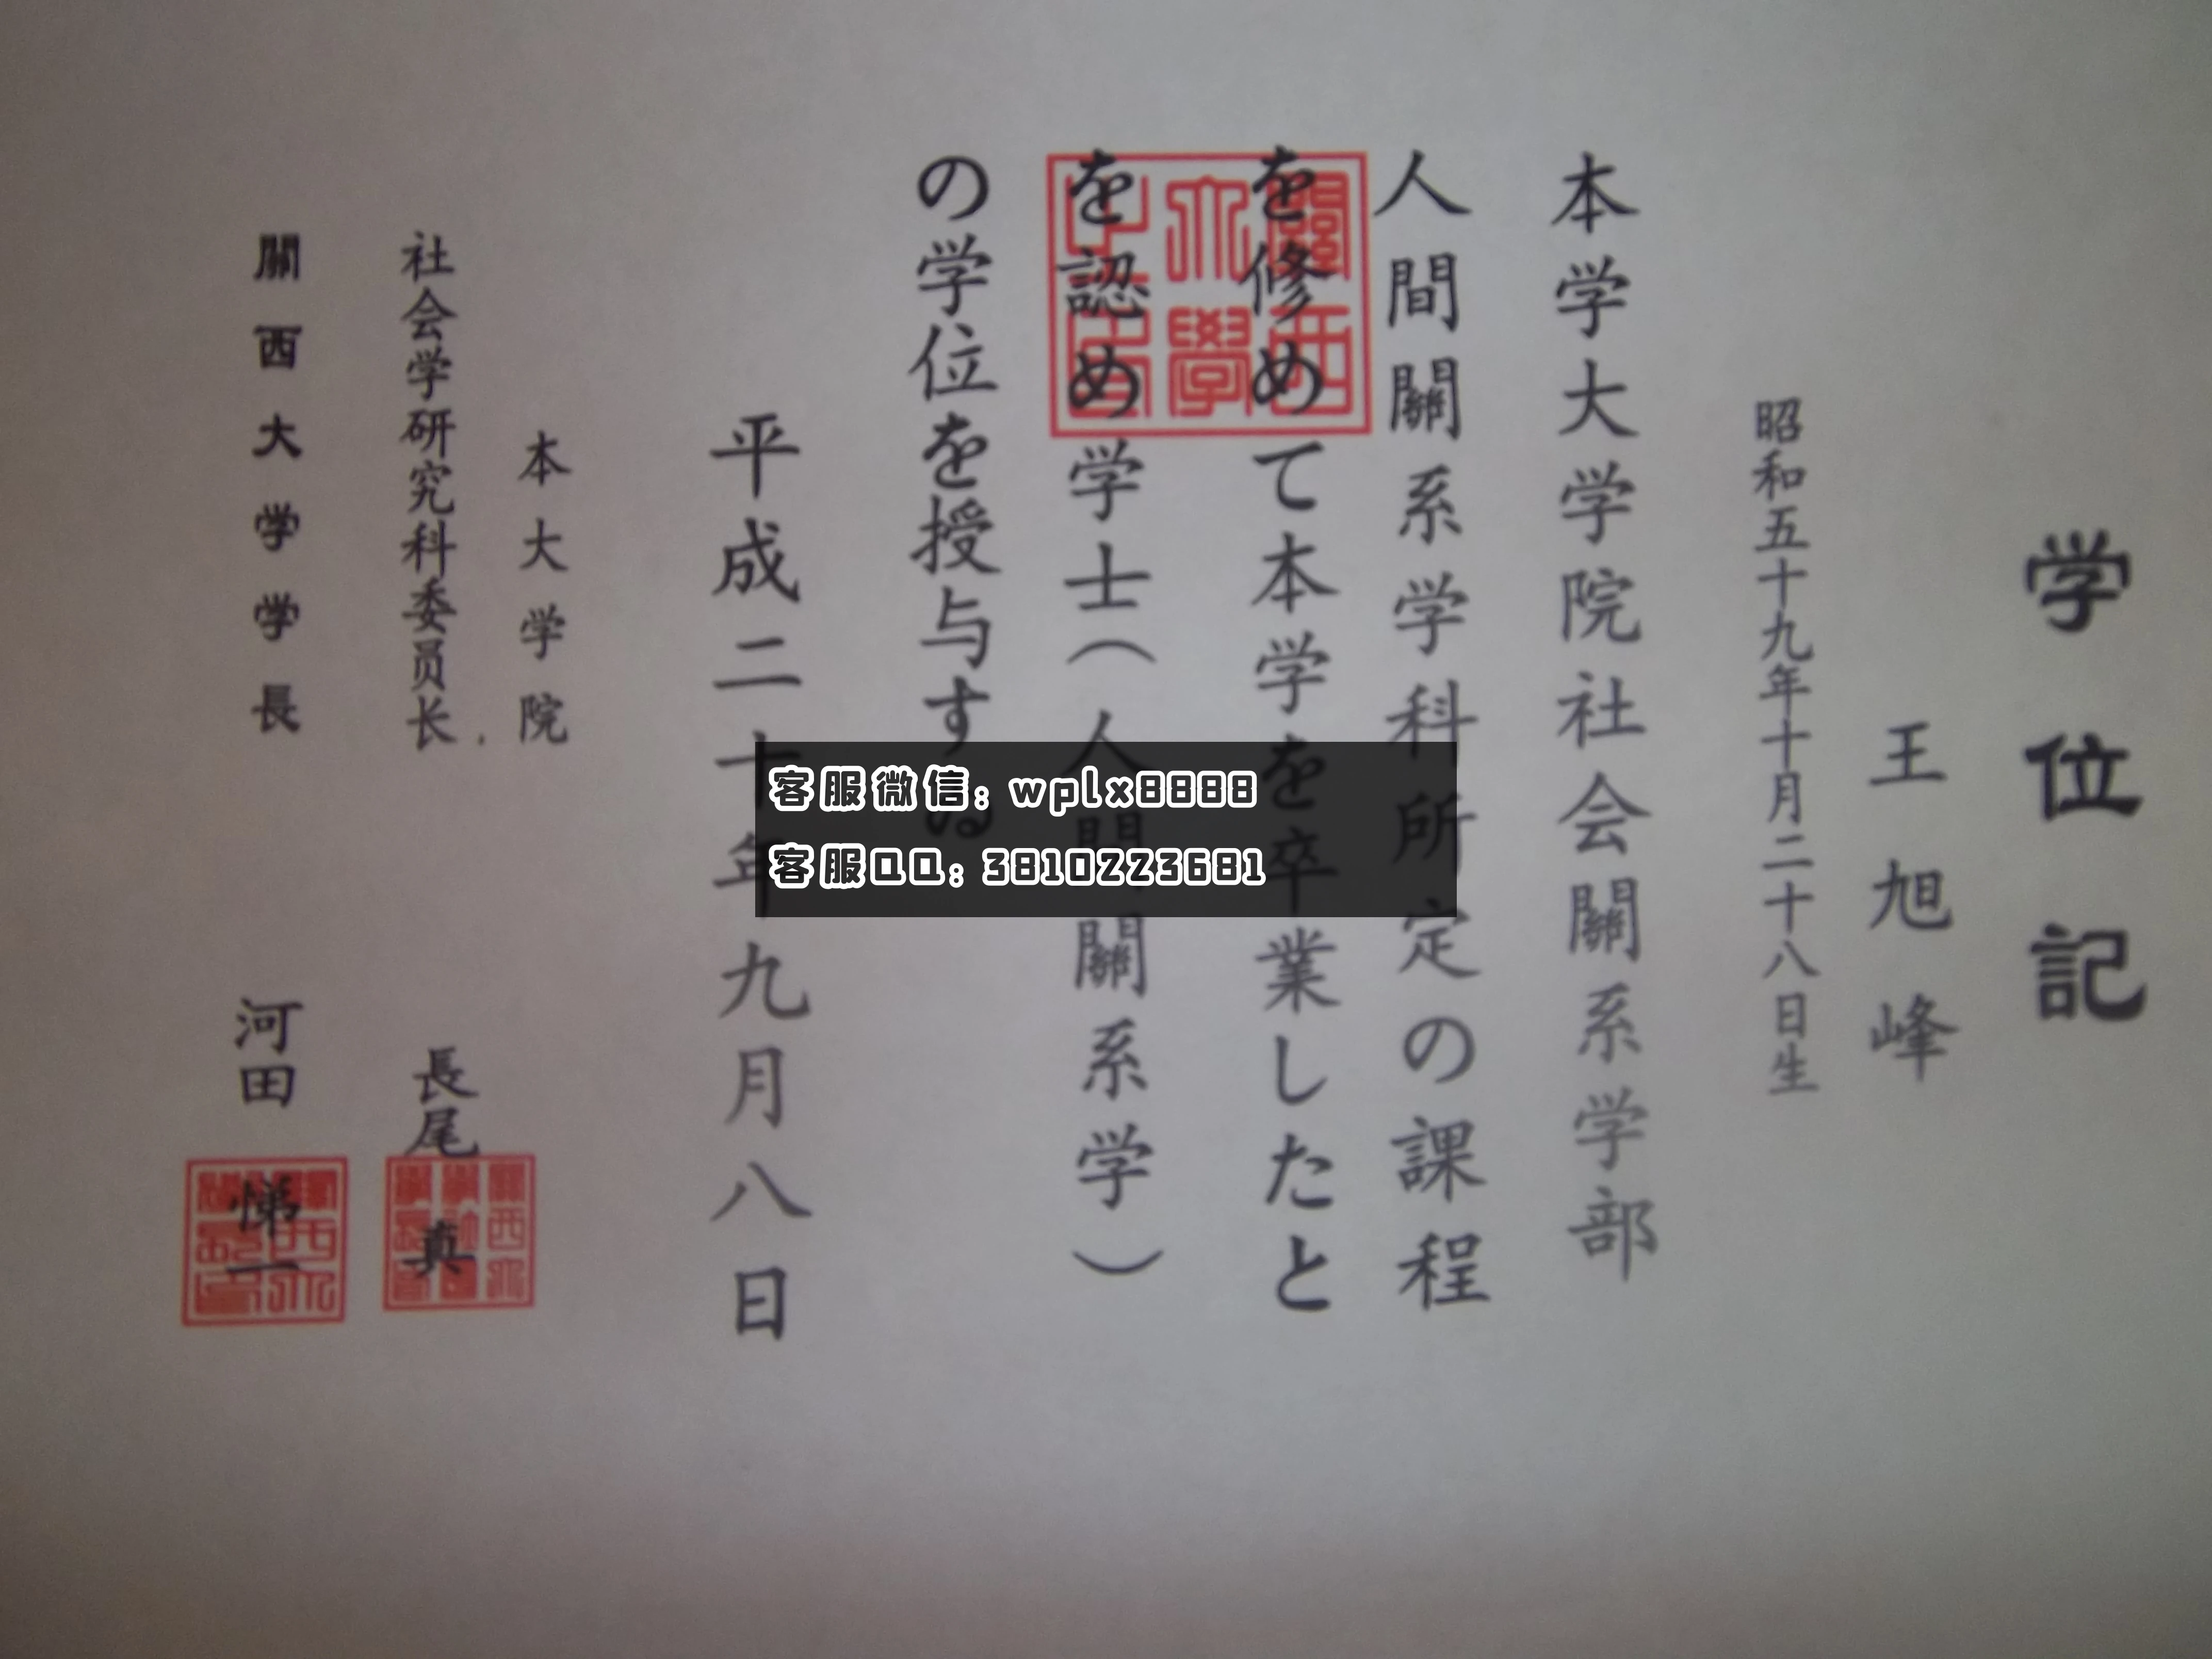 学位記
王旭峰
昭和五十九年十月二十八日生
本学大学院社会關系学部
人間關系学科所定の課程
を修めて本学を卒業したと
を認め学士(人間關系学)
の学位を授与する
平成二十年九月八日
本大学院
社会学研究科委员长 長尾 真
關西大学学長 河田 悌一
客服微信: wplx8888
客服QQ: 3810223681